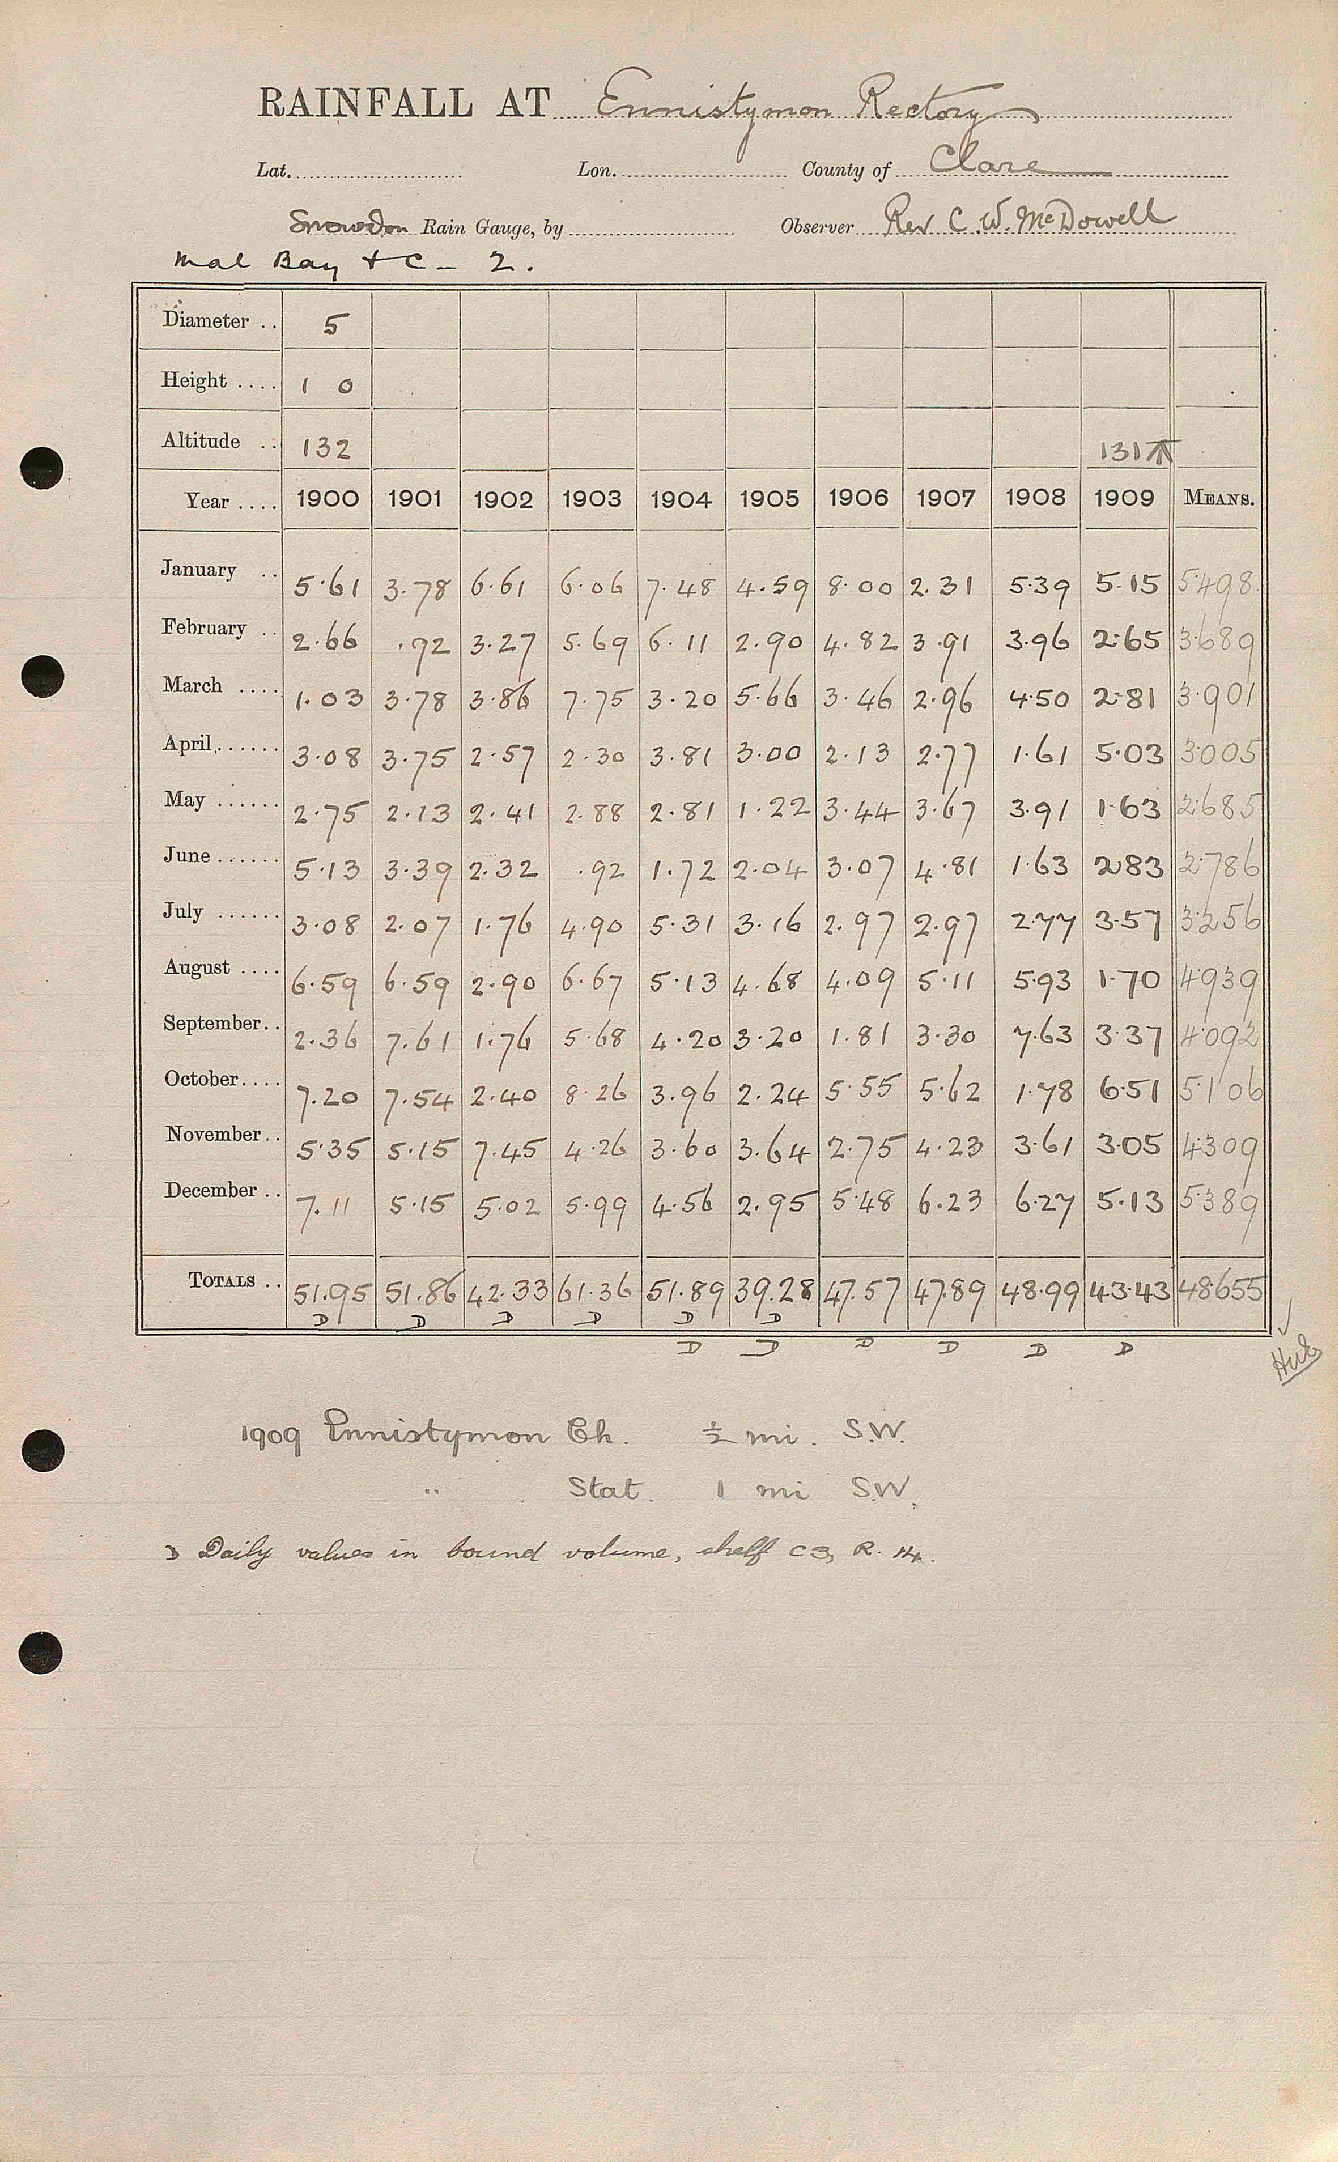 RAINFALL AT Ennistymon Rectory
Lat. Lon. County of Clare
Snowdon Rain Gauge, by Observer Rev C. W. McDowell
Mal Bay & C - 2.
Diameter .. 5
Height .... 1 0
Altitude .. 132 131
Year .... 1900 1901 1902 1903 1904 1905 1906 1907 1908 1909 MEANS.
January .. 5.61 3.78 6.61 6.06 7.48 4.59 8.00 2.31 5.39 5.15 5.498
February .. 2.66 .92 3.27 5.69 6.11 2.90 4.82 3.91 3.96 2.65 3.689
March .... 1.03 3.78 3.86 7.75 3.20 5.66 3.46 2.96 4.50 2.81 3.901
April ...... 3.08 3.75 2.57 2.30 3.81 3.00 2.13 2.77 1.61 5.03 3.005
May ...... 2.75 2.13 2.41 2.88 2.81 1.22 3.44 3.67 3.91 1.63 2.685
June ...... 5.13 3.39 2.32 .92 1.72 2.04 3.07 4.81 1.63 2.83 2.786
July ...... 3.08 2.07 1.76 4.90 5.31 3.16 2.97 2.97 2.77 3.57 3.256
August .... 6.59 6.59 2.90 6.67 5.13 4.68 4.09 5.11 5.93 1.70 4.939
September .. 2.36 7.61 1.76 5.68 4.20 3.20 1.81 3.30 7.63 3.37 4.092
October .... 7.20 7.54 2.40 8.26 3.96 2.24 5.55 5.62 1.78 6.51 5.106
November .. 5.35 5.15 7.45 4.26 3.60 3.64 2.75 4.23 3.61 3.05 4.309
December .. 7.11 5.15 5.02 5.99 4.56 2.95 5.48 6.23 6.27 5.13 5.389
TOTALS .. 51.95 51.86 42.33 61.36 51.89 39.28 47.57 47.89 48.99 43.43 48.655
D D D D D D
D D D D D D
1909 Ennistymon Ch. ½ mi. S.W.
" Stat. 1 mi S.W.
D Daily values in bound volume, shelf C3, R. 14.